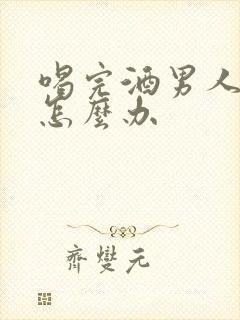 喝完酒男人
怎麼办
齊變元